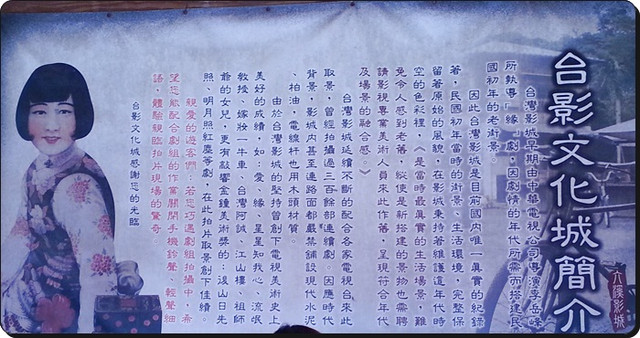 台影文化城簡介
台灣影城早期由中華電視公司導演李岳峰
所執導「緣」劇,因劇情的年代所需而搭建民
國初年的老街景。
因此台灣影城是目前國內唯一真實的紀錄
著,民國初年當時的街景、生活環境,完整保
留著原始的風貌,在影城秉持著維護這年時
空的色彩裡,《是當時最真實的生活場景,難
免令人感到老舊,縱使是新搭建的景物也需聘
請影視專業美術人員來此作舊,呈現符合年代
及場景的融合感。》
台灣影城延續不斷的配合各家電視台來此
取景,曾經拍攝過三百餘部連續劇。因應時代
背景,影城內甚至連路面都嚴禁舖設現代水泥
、柏油,電線杆也用木頭材質。
由於台灣影城的堅持曾創下電視美術史上
美好的成績,如:愛、緣、星星知我心、流氓
教授、嫁妝一牛車、台灣阿誠、江山樓、祖師
爺的女兒,更有敲響金鐘美術獎的:後山日先
照、明月照紅塵等劇,在此拍片取景創下佳績。
親愛的遊客們:若您巧遇劇組拍攝中,希
望您能配合劇組的作業關閉手機鈴聲、輕聲細
語,體驗親臨拍片現場的驚奇。
台影文化城感謝您的光臨
六溪影城